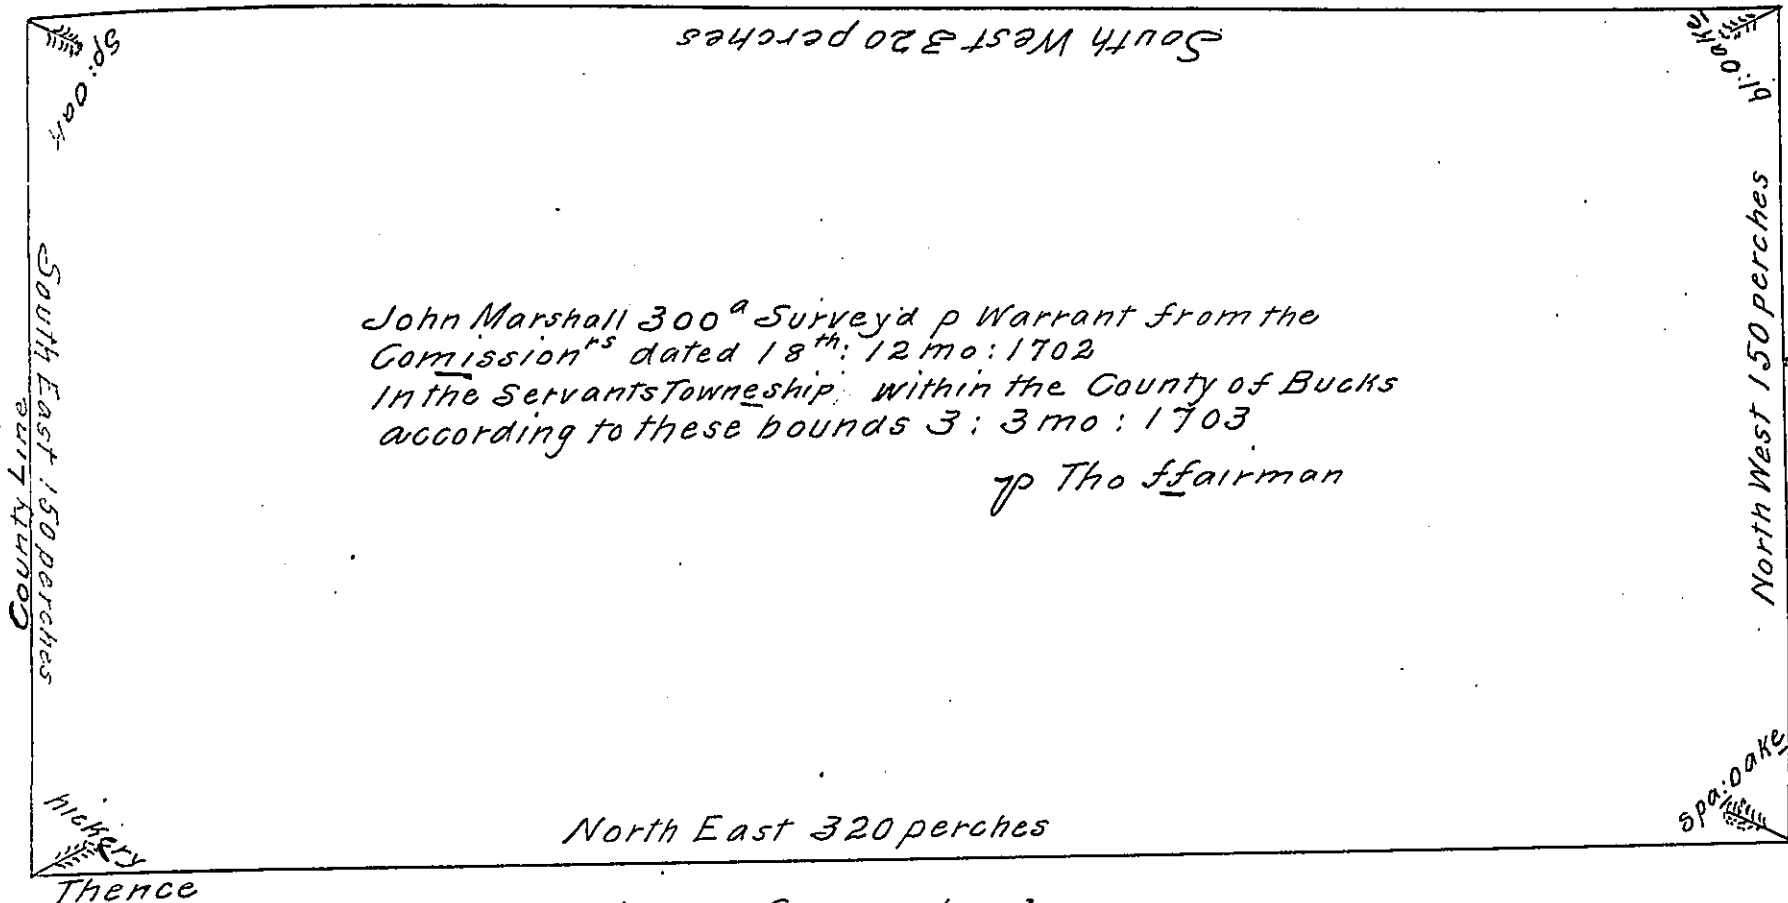 South West 320 perches
Sp: Oak
bl: Oake
South East 150 perches
County Line
North West 150 perches
John Marshall 300ᵃ Survey'd p Warrant from the
Comissionʳˢ dated 18ᵗʰ: 12 mo: 1702
In the Servants Towneship within the County of Bucks
according to these bounds 3: 3 mo: 1703
p Tho ffairman
hickery
Spa: Oake
North East 320 perches
Thence